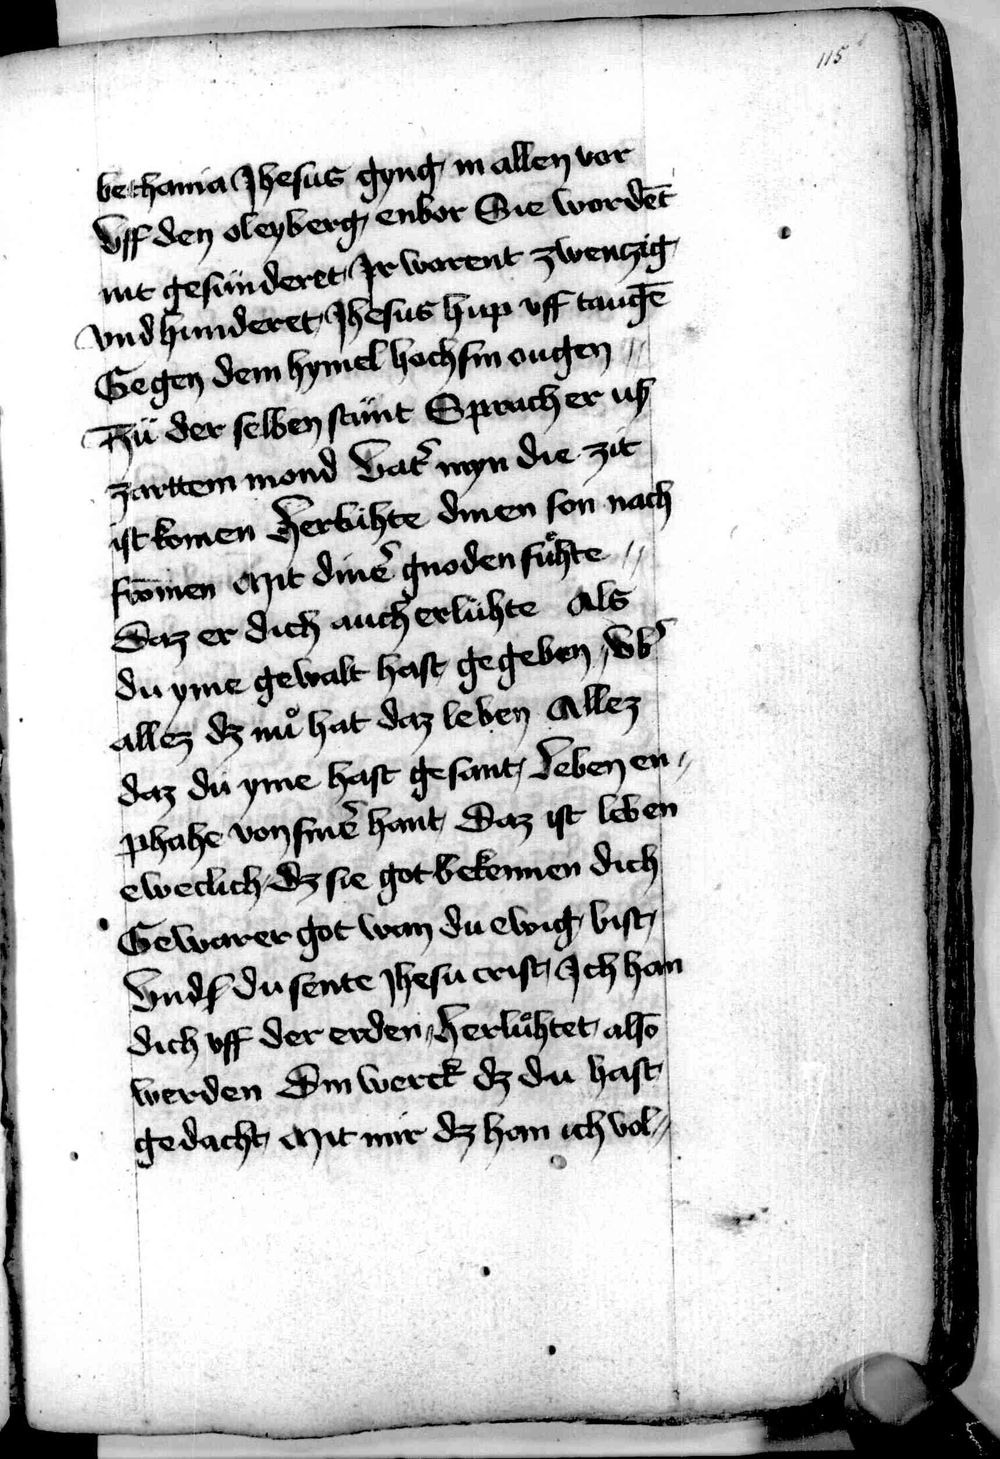 115
bethania Jhesus gyng in allen vor
Vff den oleyberg enbor Sie wordēt
nit gesünderet Jr warent zwenzig
vnd hunderet Jhesus hup vff taugē
Gegen dem hymel hoch sin ougen //
Zü der selben stünt Sprach er uß
zarttem mond Vat' myn die zit
ist komen Herlühte dinen son nach
fromen Mit din' gnoden fuͦhte //
Daz er dich auch erlühte Als
du yme gewalt hast gegeben / Vb'
allez dz nuͦ hat daz leben Allez
daz du yme hast gesant / Leben en /
phahe von sin' hant / Daz ist leben
eweclich / dz sie got bekennen dich
Gewarer got wan du ewig bist /
Vnd du sente Jhesu crist / Jch han
dich vff der erden / Herluͦhtet also
werden Din werck dz du hast
gedacht / Mit mir dz han ich vol //